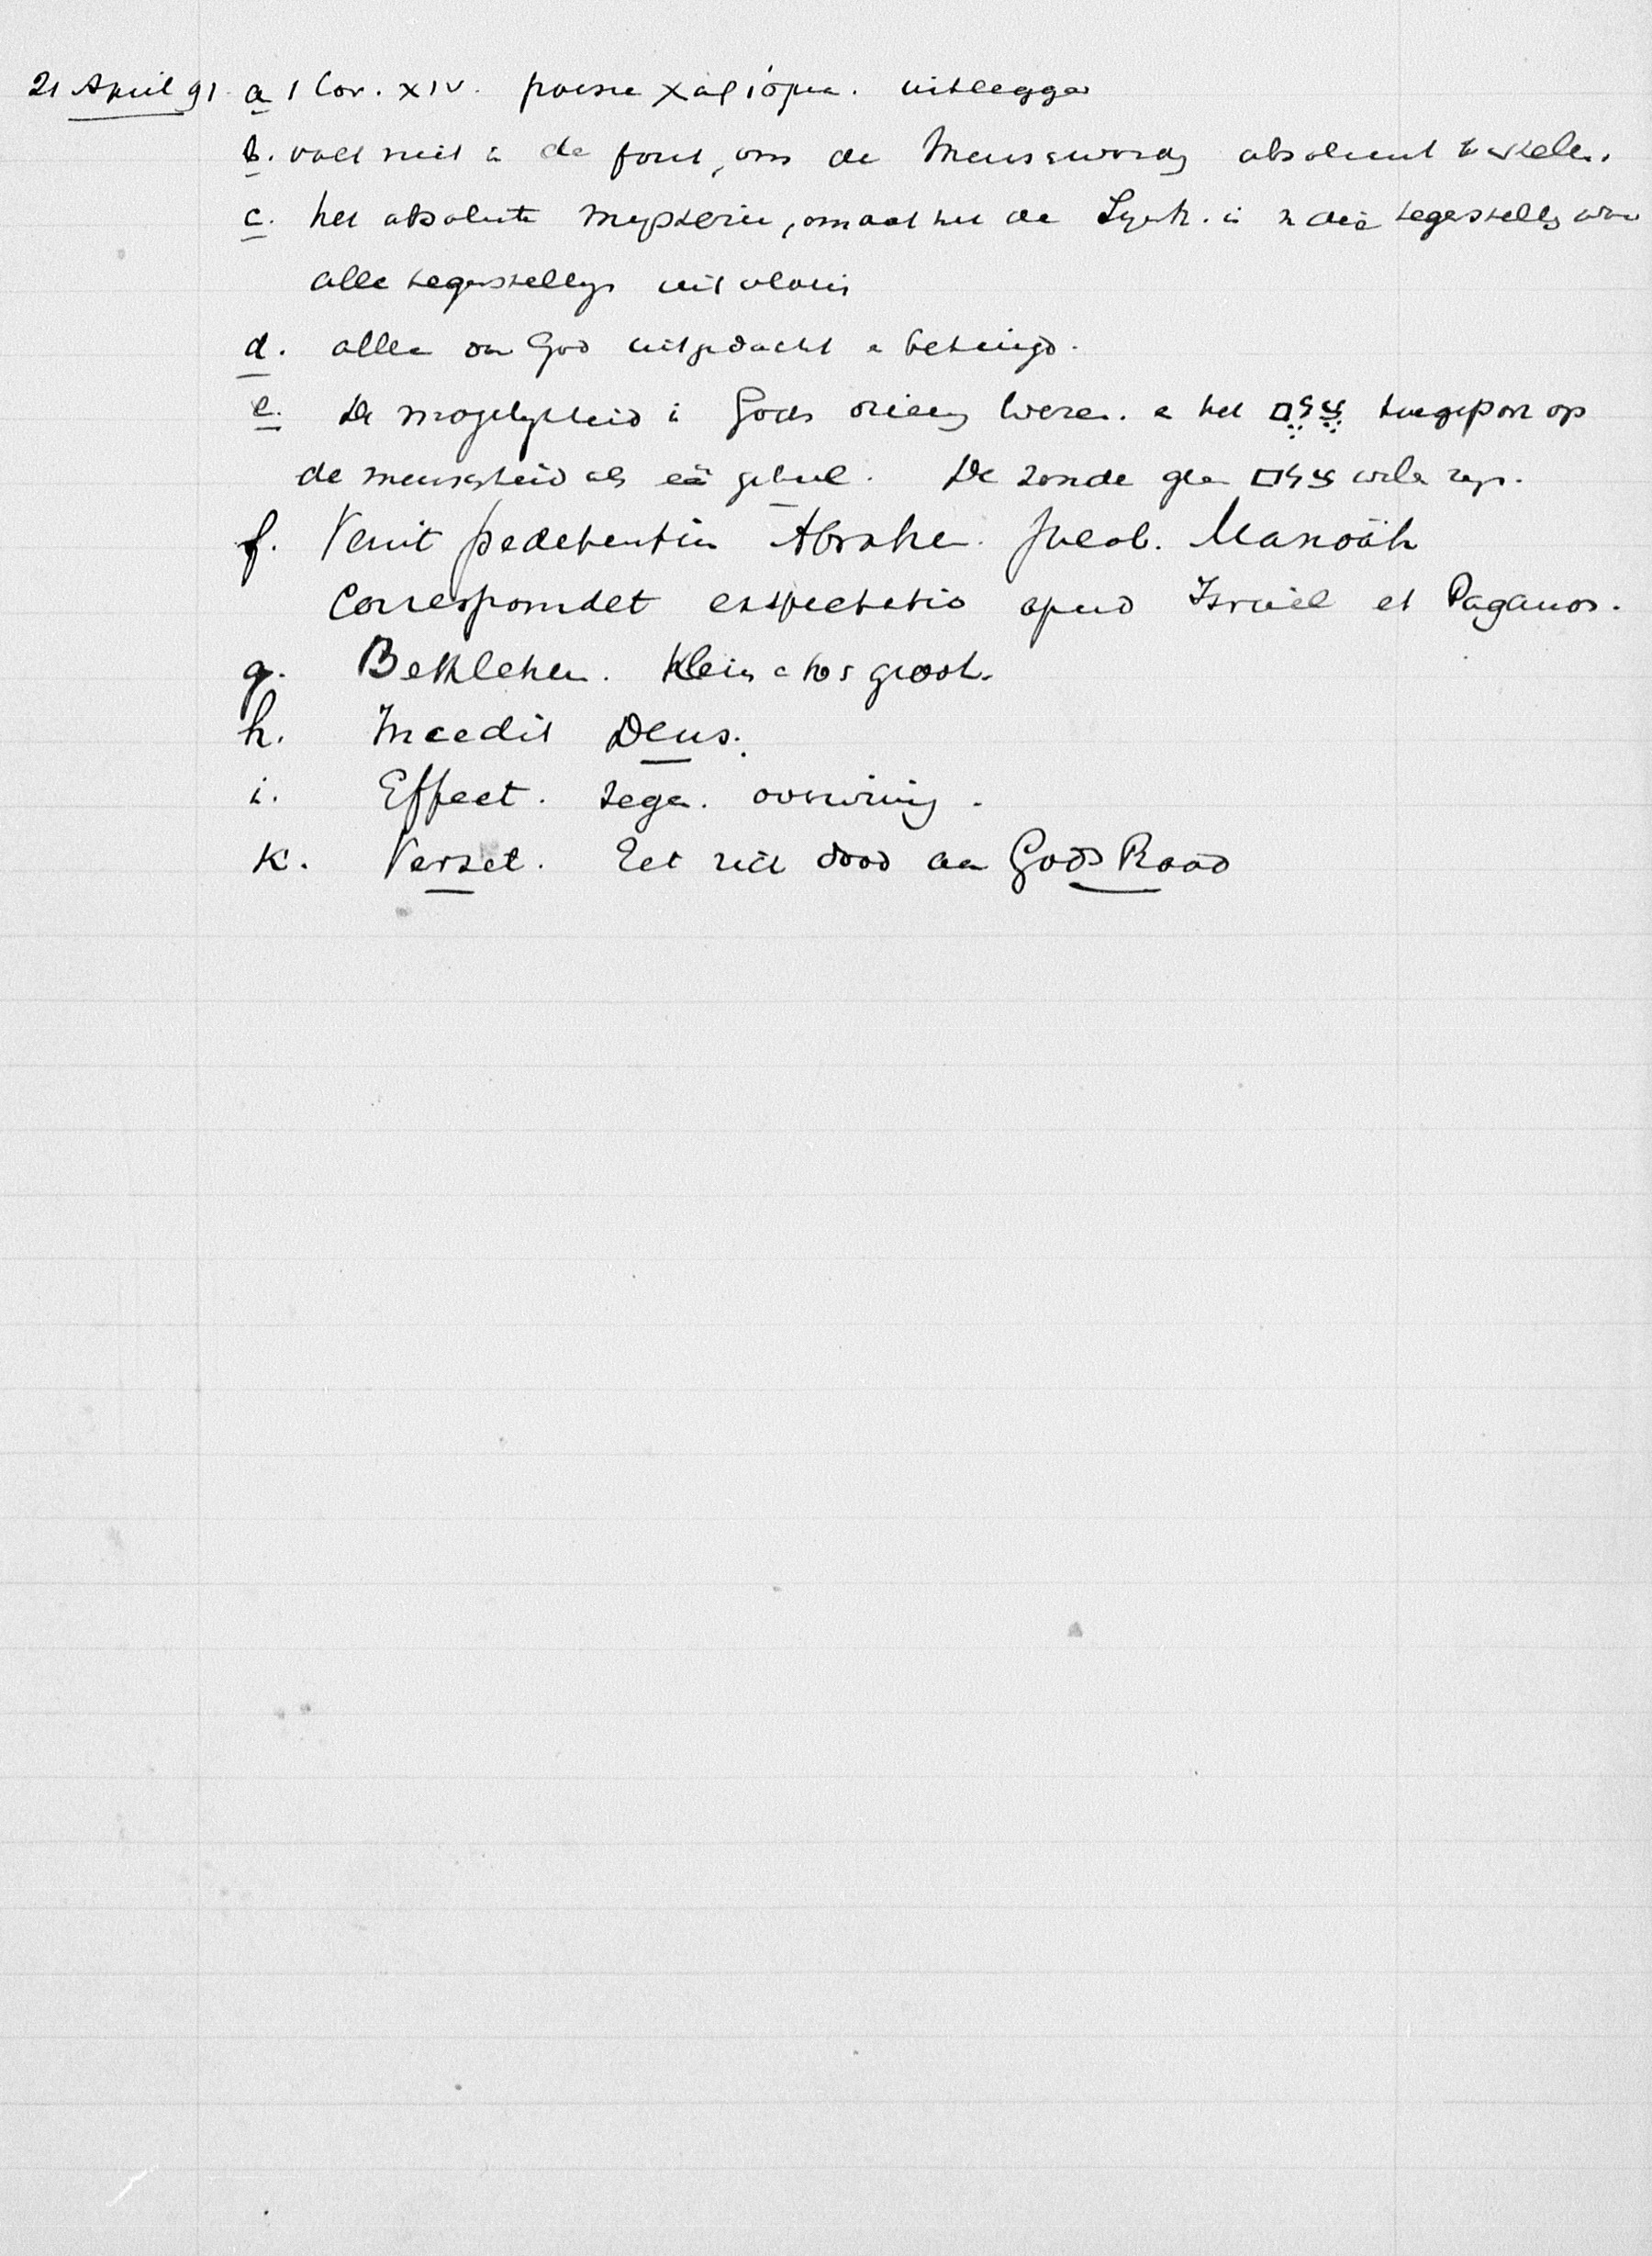 21 April 91. a 1 Cor. XIV. poesie χαρίσμα. uitlegger
b. valt niet in de fout, om de Menswordg absoluut te stelen.
c. het absolute mysterie, omdat het de Synth. is v die tegenstellg waar
alle tegenstellgn uit vloeien
d. alleen door God uitgedacht en
e. De mogelykheid in Gods Wezen. en het צֶלֶם toegepast op
de menschheid als één geheel. De zonde geen צלם wille zyn.
f. Venit pedetentim Abrahe. Jacob. Manoäh
Correspondet exspectatio apud Israël et Paganos.
g. Bethlehem. Klein en toch groot.
h. Incedit Deus.
i. Effect. zegen. overwinng.
k. Verzet. Zet zich dood aan Gods Raad